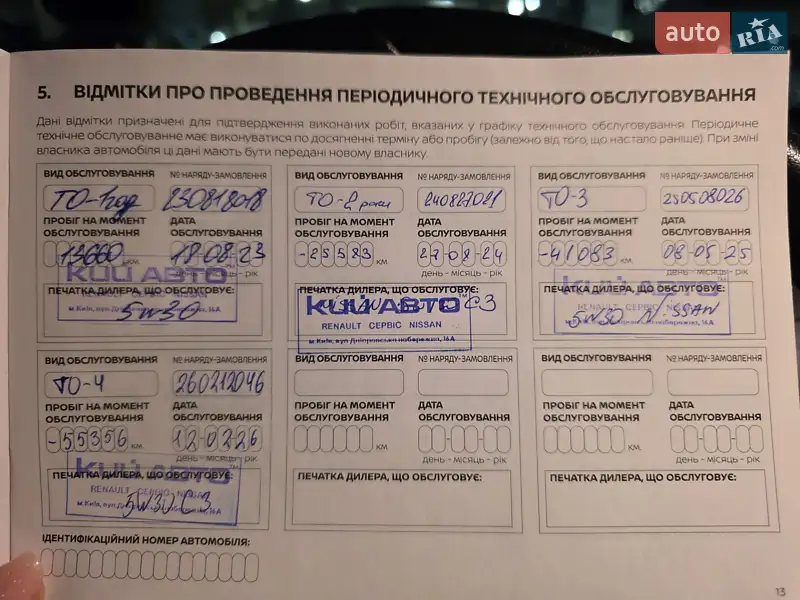 auto RIA.com
5. ВІДМІТКИ ПРО ПРОВЕДЕННЯ ПЕРІОДИЧНОГО ТЕХНІЧНОГО ОБСЛУГОВУВАННЯ
Дані відмітки призначені для підтвердження виконаних робіт, вказаних у графіку технічного обслуговування. Періодичне
технічне обслуговуванне має виконуватися по досягненні терміну або пробігу (залежно від того, що настало раніше). При зміні
власника автомобіля ці дані мають бути передані новому власнику.
ВИД ОБСЛУГОВУВАННЯ № НАРЯДУ-ЗАМОВЛЕННЯ
ТО-1год 230818018
ПРОБІГ НА МОМЕНТ ОБСЛУГОВУВАННЯ ДАТА ОБСЛУГОВУВАННЯ
13660 км 18-08-23
день - місяць - рік
ПЕЧАТКА ДИЛЕРА, ЩО ОБСЛУГОВУЄ:
КИЙ АВТО
RENAULT СЕРВІС NISSAN
м.Київ, вул Дніпровська набережна, 16А
5W30
ВИД ОБСЛУГОВУВАННЯ № НАРЯДУ-ЗАМОВЛЕННЯ
ТО-2 роки 240827021
ПРОБІГ НА МОМЕНТ ОБСЛУГОВУВАННЯ ДАТА ОБСЛУГОВУВАННЯ
-25383 км 27-08-24
день - місяць - рік
ПЕЧАТКА ДИЛЕРА, ЩО ОБСЛУГОВУЄ:
КИЙ АВТО C3
RENAULT СЕРВІС NISSAN
м.Київ, вул Дніпровська набережна, 16А
ВИД ОБСЛУГОВУВАННЯ № НАРЯДУ-ЗАМОВЛЕННЯ
ТО-3 250508026
ПРОБІГ НА МОМЕНТ ОБСЛУГОВУВАННЯ ДАТА ОБСЛУГОВУВАННЯ
-41083 км 08-05-25
день - місяць - рік
ПЕЧАТКА ДИЛЕРА, ЩО ОБСЛУГОВУЄ:
КИЙ АВТО
RENAULT СЕРВІС NISSAN
5W30 NISSAN
м.Київ, вул Дніпровська набережна, 16А
ВИД ОБСЛУГОВУВАННЯ № НАРЯДУ-ЗАМОВЛЕННЯ
ТО-4 260212046
ПРОБІГ НА МОМЕНТ ОБСЛУГОВУВАННЯ ДАТА ОБСЛУГОВУВАННЯ
-55356 км 12-02-26
день - місяць - рік
ПЕЧАТКА ДИЛЕРА, ЩО ОБСЛУГОВУЄ:
КИЙ АВТО
RENAULT СЕРВІС NISSAN
5W30 C3
м.Київ, вул Дніпровська набережна, 16А
ВИД ОБСЛУГОВУВАННЯ № НАРЯДУ-ЗАМОВЛЕННЯ
ПРОБІГ НА МОМЕНТ ОБСЛУГОВУВАННЯ ДАТА ОБСЛУГОВУВАННЯ
км день - місяць - рік
ПЕЧАТКА ДИЛЕРА, ЩО ОБСЛУГОВУЄ:
ВИД ОБСЛУГОВУВАННЯ № НАРЯДУ-ЗАМОВЛЕННЯ
ПРОБІГ НА МОМЕНТ ОБСЛУГОВУВАННЯ ДАТА ОБСЛУГОВУВАННЯ
км день - місяць - рік
ПЕЧАТКА ДИЛЕРА, ЩО ОБСЛУГОВУЄ:
ІДЕНТИФІКАЦІЙНИЙ НОМЕР АВТОМОБІЛЯ:
13